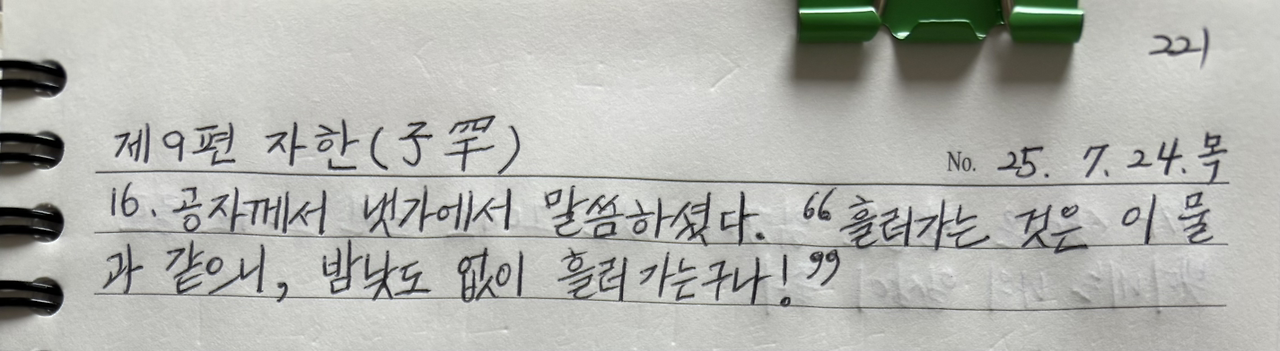 221
제9편 자한(子罕)
No. 25. 7. 24. 목
16. 공자께서 냇가에서 말씀하셨다. “흘러가는 것은 이 물
과 같으니, 밤낮도 없이 흘러가는구나!”